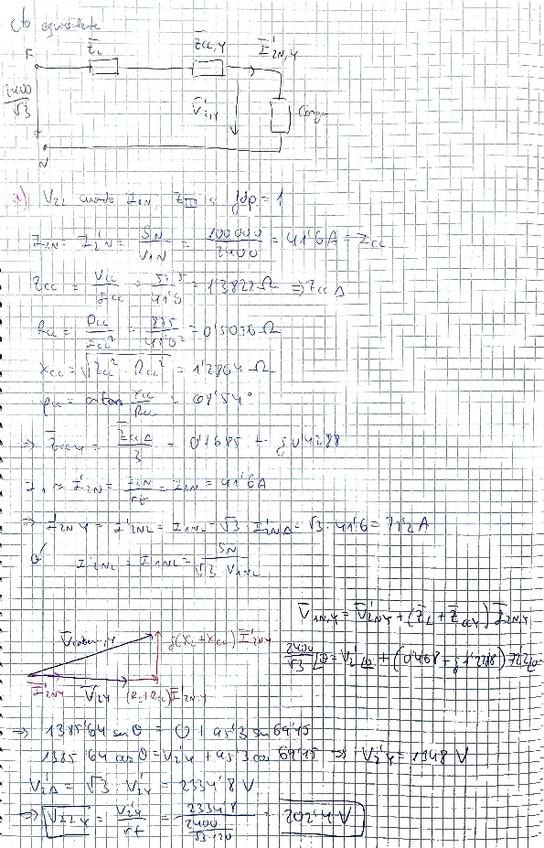 cto equivalente
F Z̄L Z̄cc,Y Ī'2N,Y
2400/√3 V̄'2,Y Carga
N
a) V2L cuando I1N, fdp = 1
I1N = I'2N = SN/V1N = 100000/2400 = 41'6 A = Icc
Zcc = Vcc/Icc = = 1'3822 Ω ⇒ Zcc Δ
Rcc = Pcc/Icc² = 875/41'6² = 0'5056 Ω
Xcc = √(Zcc² - Rcc²) = 1'2864 Ω
φcc = arctan Xcc/Rcc = 68'54°
⇒ Z̄ccY = Z̄ccΔ/3 = 0'1685 + j 0'4288
I1 = I'2N = I2N/rt = I1N = 41'6 A
⇒ I'2NY = I'2NL = I1NL = √3 · I'2NΔ = √3 · 41'6 = 72'2 A
I'2NL = I1NL = SN/(√3 V1NL)
V̄1N,Y = V̄'2NY + (Z̄L + Z̄ccY) Ī'2N,Y
j(XL+Xcc) Ī'2NY
2400/√3 = V'2 + (0'468 + j 1'218) 72'2
Ī'2NY V̄'2Y (RL+Rcc) Ī'2N,Y
⇒ 1385'64 sen θ = 0 + 95'3 sen 69'15
1385'64 cos θ = V'2Y + 95'3 cos 69'15 ⇒ V'2Y = 1348 V
V'2Δ = √3 · V'2Y = 2334'8 V
⇒ V2LY = V'2Y/rt = 2334'8/(2400/(√3·120)) = 202'4 V